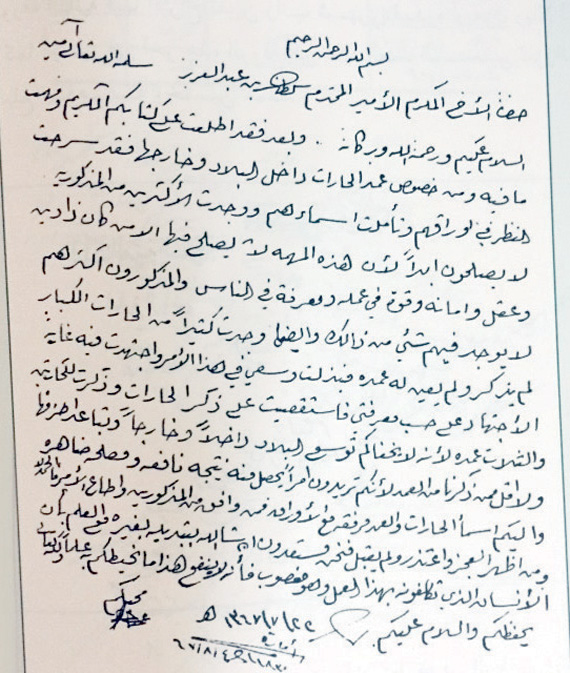 بسم الله الرحمن الرحيم
حضرة الأخ المكرم الأمير المحترم بن عبد العزيز سلمه الله تعالى آمين
السلام عليكم ورحمة الله وبركاته . وبعد فقد اطلعت على كتابكم الكريم وفهمت
ما فيه ومن خصوص عمد الحارات داخل البلاد وخارجها فقد سرحت
النظر في اوراقهم وتأملت اسماءهم ووجدت الأكثرين من المذكورين
لا يصلحون ابداً لأن هذه المهمه لا يصلح فيها الا من كان ذا دين
وعقل وامانه وقوة في عمله ومعرفة في الناس والمذكورون اكثرهم
لا يوجد فيهم شئي من ذالك وايضا وجدت كثيراً من الحارات الكبار
لم يذكر ولم يعين له عمده فبذلت وسعي في هذا الأمر واجتهدت فيه غاية
الأجتهاد على حسب معرفتي فاستقصيت على ذكر الحارات وذكرت للحارتين
والثلاث عمده لأنه لا يخفاكم توسع البلاد داخلاً وخارجاً وتباعد اطرافها
ولا اقل من ذكرنا من العمد لأنكم تريدون امراً يحصل فيه نتيجه نافعه ومصلحه ضاهره
واليكم اسماء الحارات والعمد مرفقه مع الأوراق فمن وافق من المذكورين واطاع الأمر فالحمد لله
ومن اظهر العجز واعتذر ولم يقبل فنحن مستعدون انشاالله بتقديره بغيره مع العلم بأن
الأنسان الذي تكلفونه بهذا العمل وهو مغصوب فأنه لا ينفع هذا ما نحيطكم به علماً والله تعالى
يحفظكم والسلام عليكم. محبكم
١٣٦٧/٧/٢٢ هـ
٦٧/٨/٤